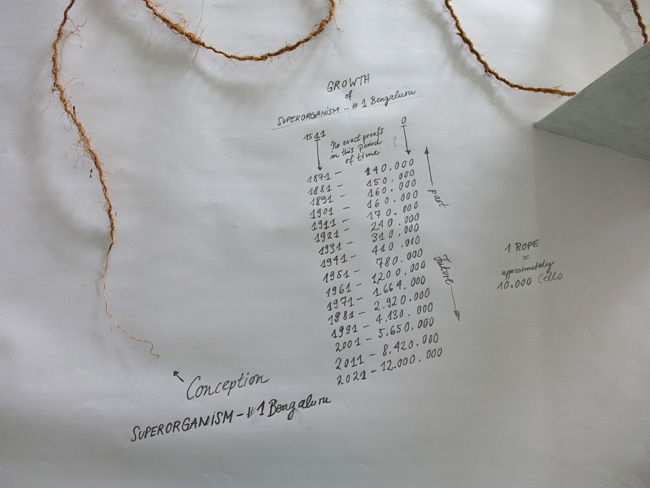 GROWTH
of
SUPERORGANISM - #1 Bengaluru
1511 0
No exact proofs
in this period ?
of time
1871 - 140.000
1881 - 150.000
1891 - 160.000
1901 - 160.000
1911 - 170.000
1921 - 240.000
1931 - 310.000
1941 - 410.000
1951 - 780.000
1961 - 1200.000
1971 - 1.664.000
1981 - 2.920.000
1991 - 4.130.000
2001 - 5.650.000
2011 - 8.420.000
2021 - 12.000.000
past
Future
1 ROPE
=
aproximately
10.000 Cells
Conception
SUPERORGANISM - #1 Bengaluru